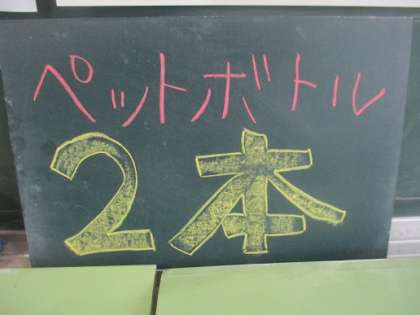 ペットボトル
2本